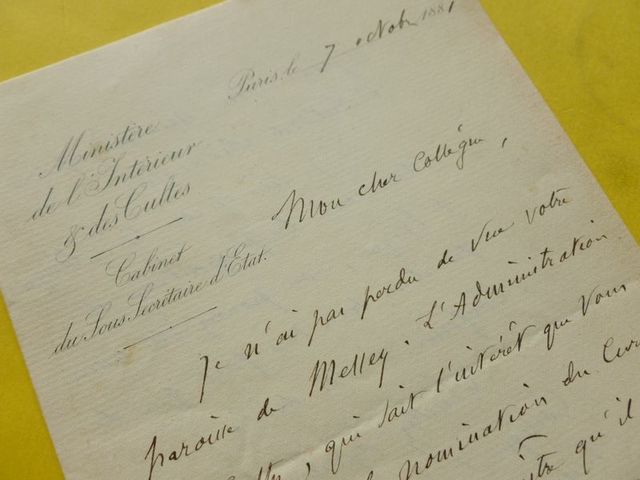 Paris, le 7 octobre 1881
Ministère
de l'Intérieur
& des Cultes
Cabinet
du Sous Secrétaire d'Etat.
Mon cher Collègue,
Je n'ai pas perdu de vue votre
paroisse de Messey. L'Administration
qui sait l'intérêt que vous
nomination du Curé
qu'il